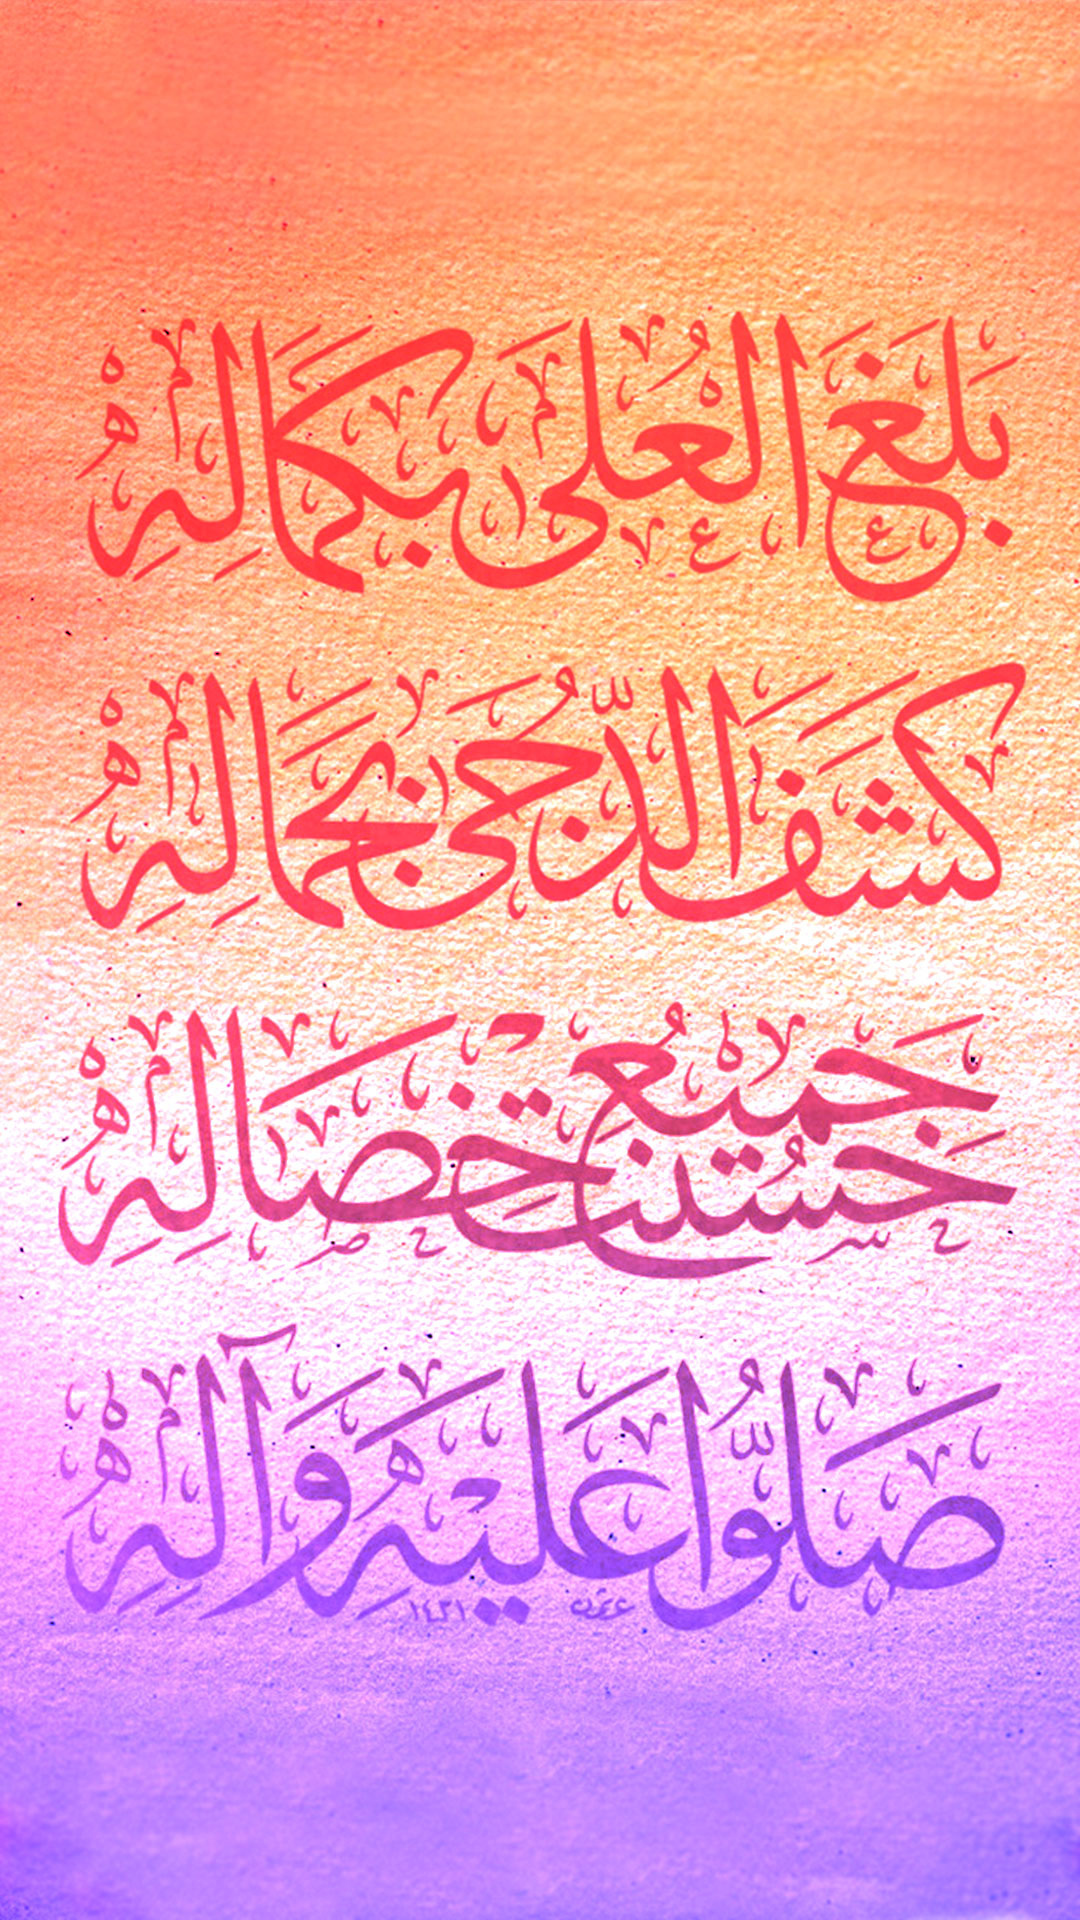 بَلَغَ الْعُلَىٰ بِكَمَالِهِ
كَشَفَ الدُّجَىٰ بِجَمَالِهِ
حَسُنَتْ جَمِيعُ خِصَالِهِ
صَلُّوا عَلَيْهِ وَآلِهِ
١٤٣١